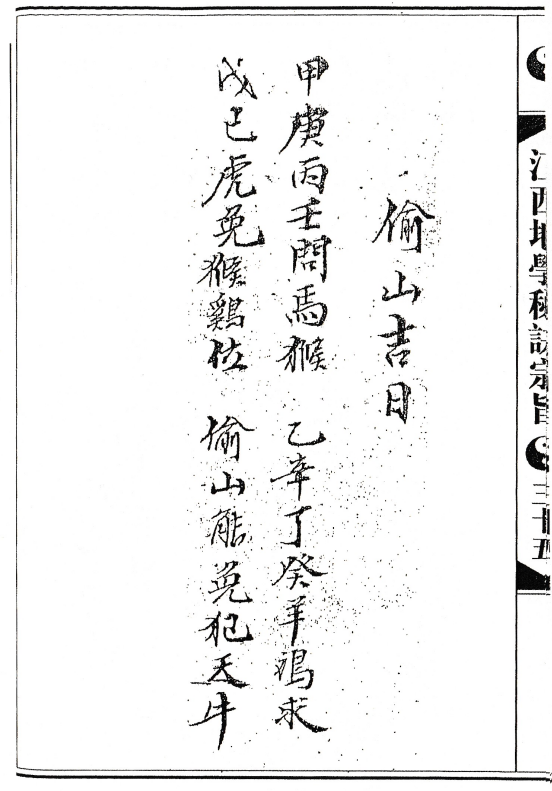 江西地學秘訣宗旨 三十五
偷山吉日
甲庚丙壬問馬猴 乙辛丁癸羊鷄求
戊己虎兔猴鷄位 偷山能免犯天牛